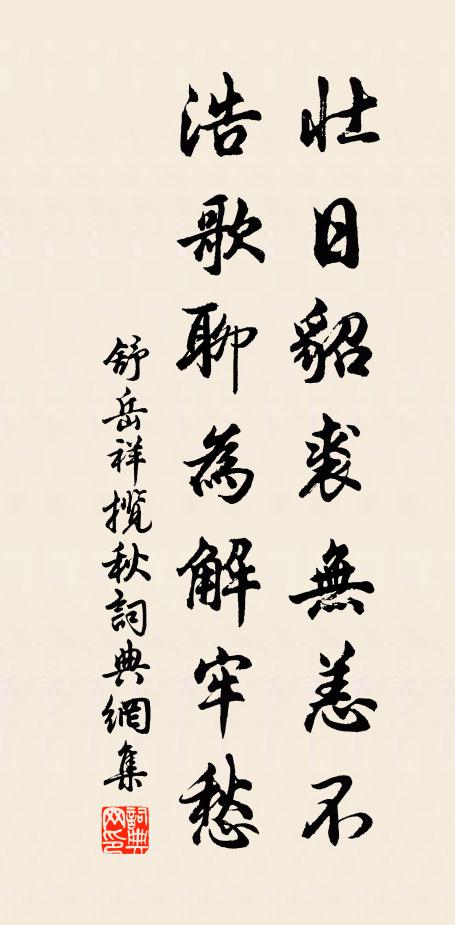 壯日貂裘無恙不
浩歌聊為解牢愁
舒岳祥攬秋詞典網集
詞典網印